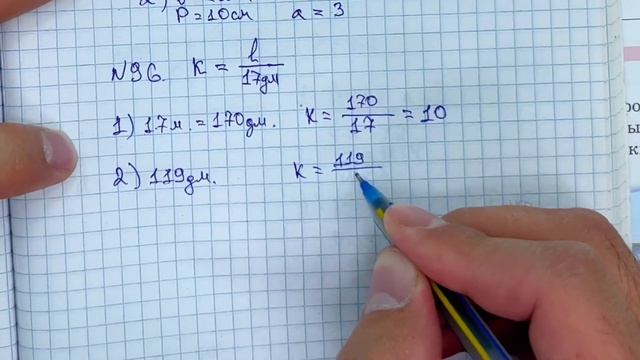 P = 10 см a = 3
№96. K = l / 17дм
1) 17м. = 170дм. K = 170 / 17 = 10
2) 119дм. K = 119 /
ро
ы
к